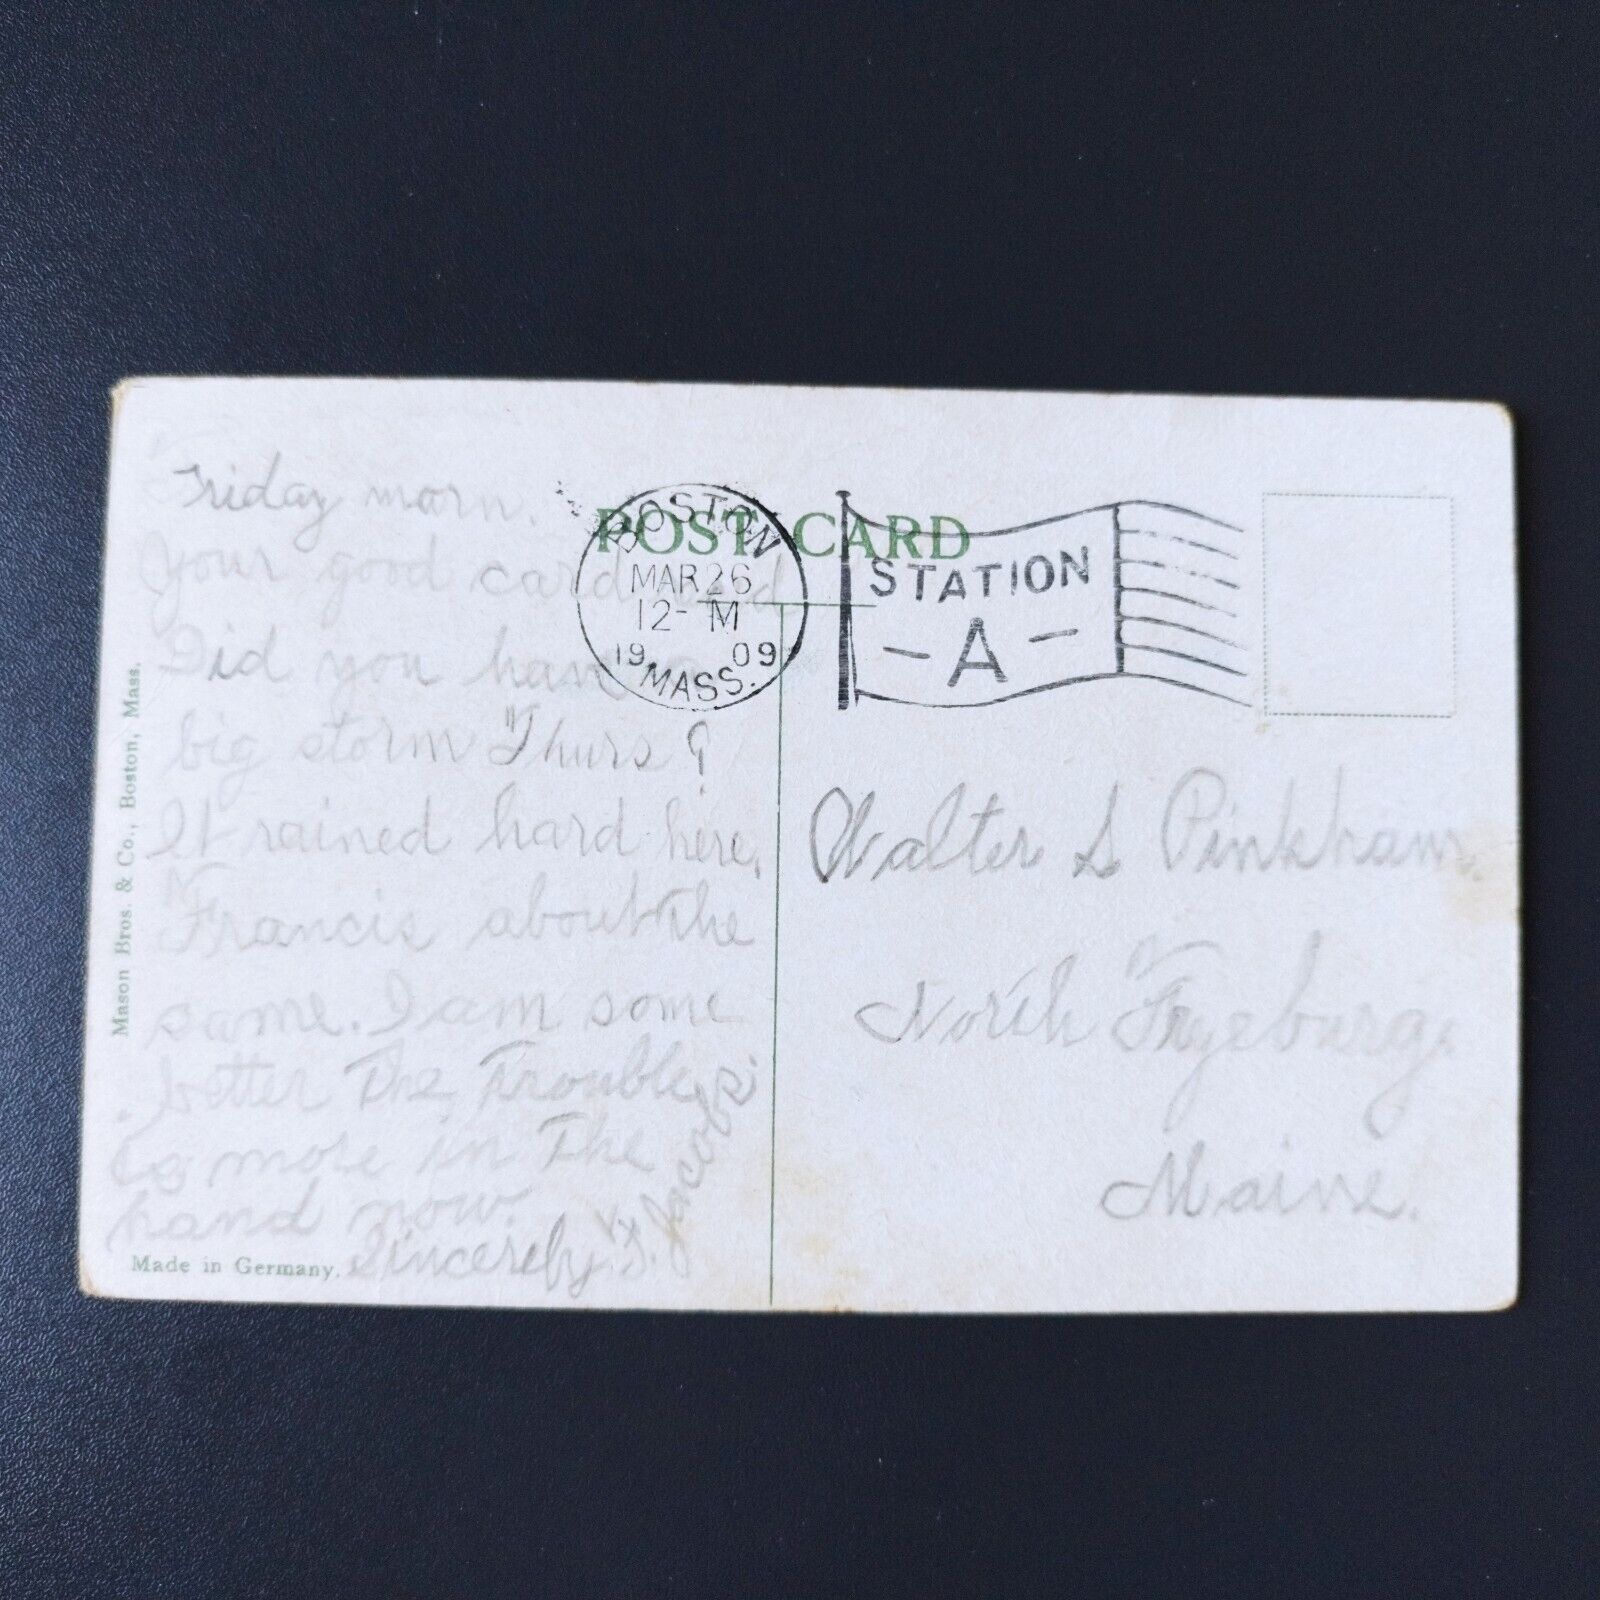 POST CARD
BOSTON
MAR 26
12- M
1909
MASS.
STATION
- A -
Friday morn.
Your good card
Did you have a
big storm Thurs?
It rained hard here.
Francis about the
same. I am some
better The Trouble
is more in The
hand now.
Sincerely F. Jacobs.
Walter S Pinkham.
North Fryeburg.
Maine.
Mason Bros. & Co., Boston, Mass.
Made in Germany.